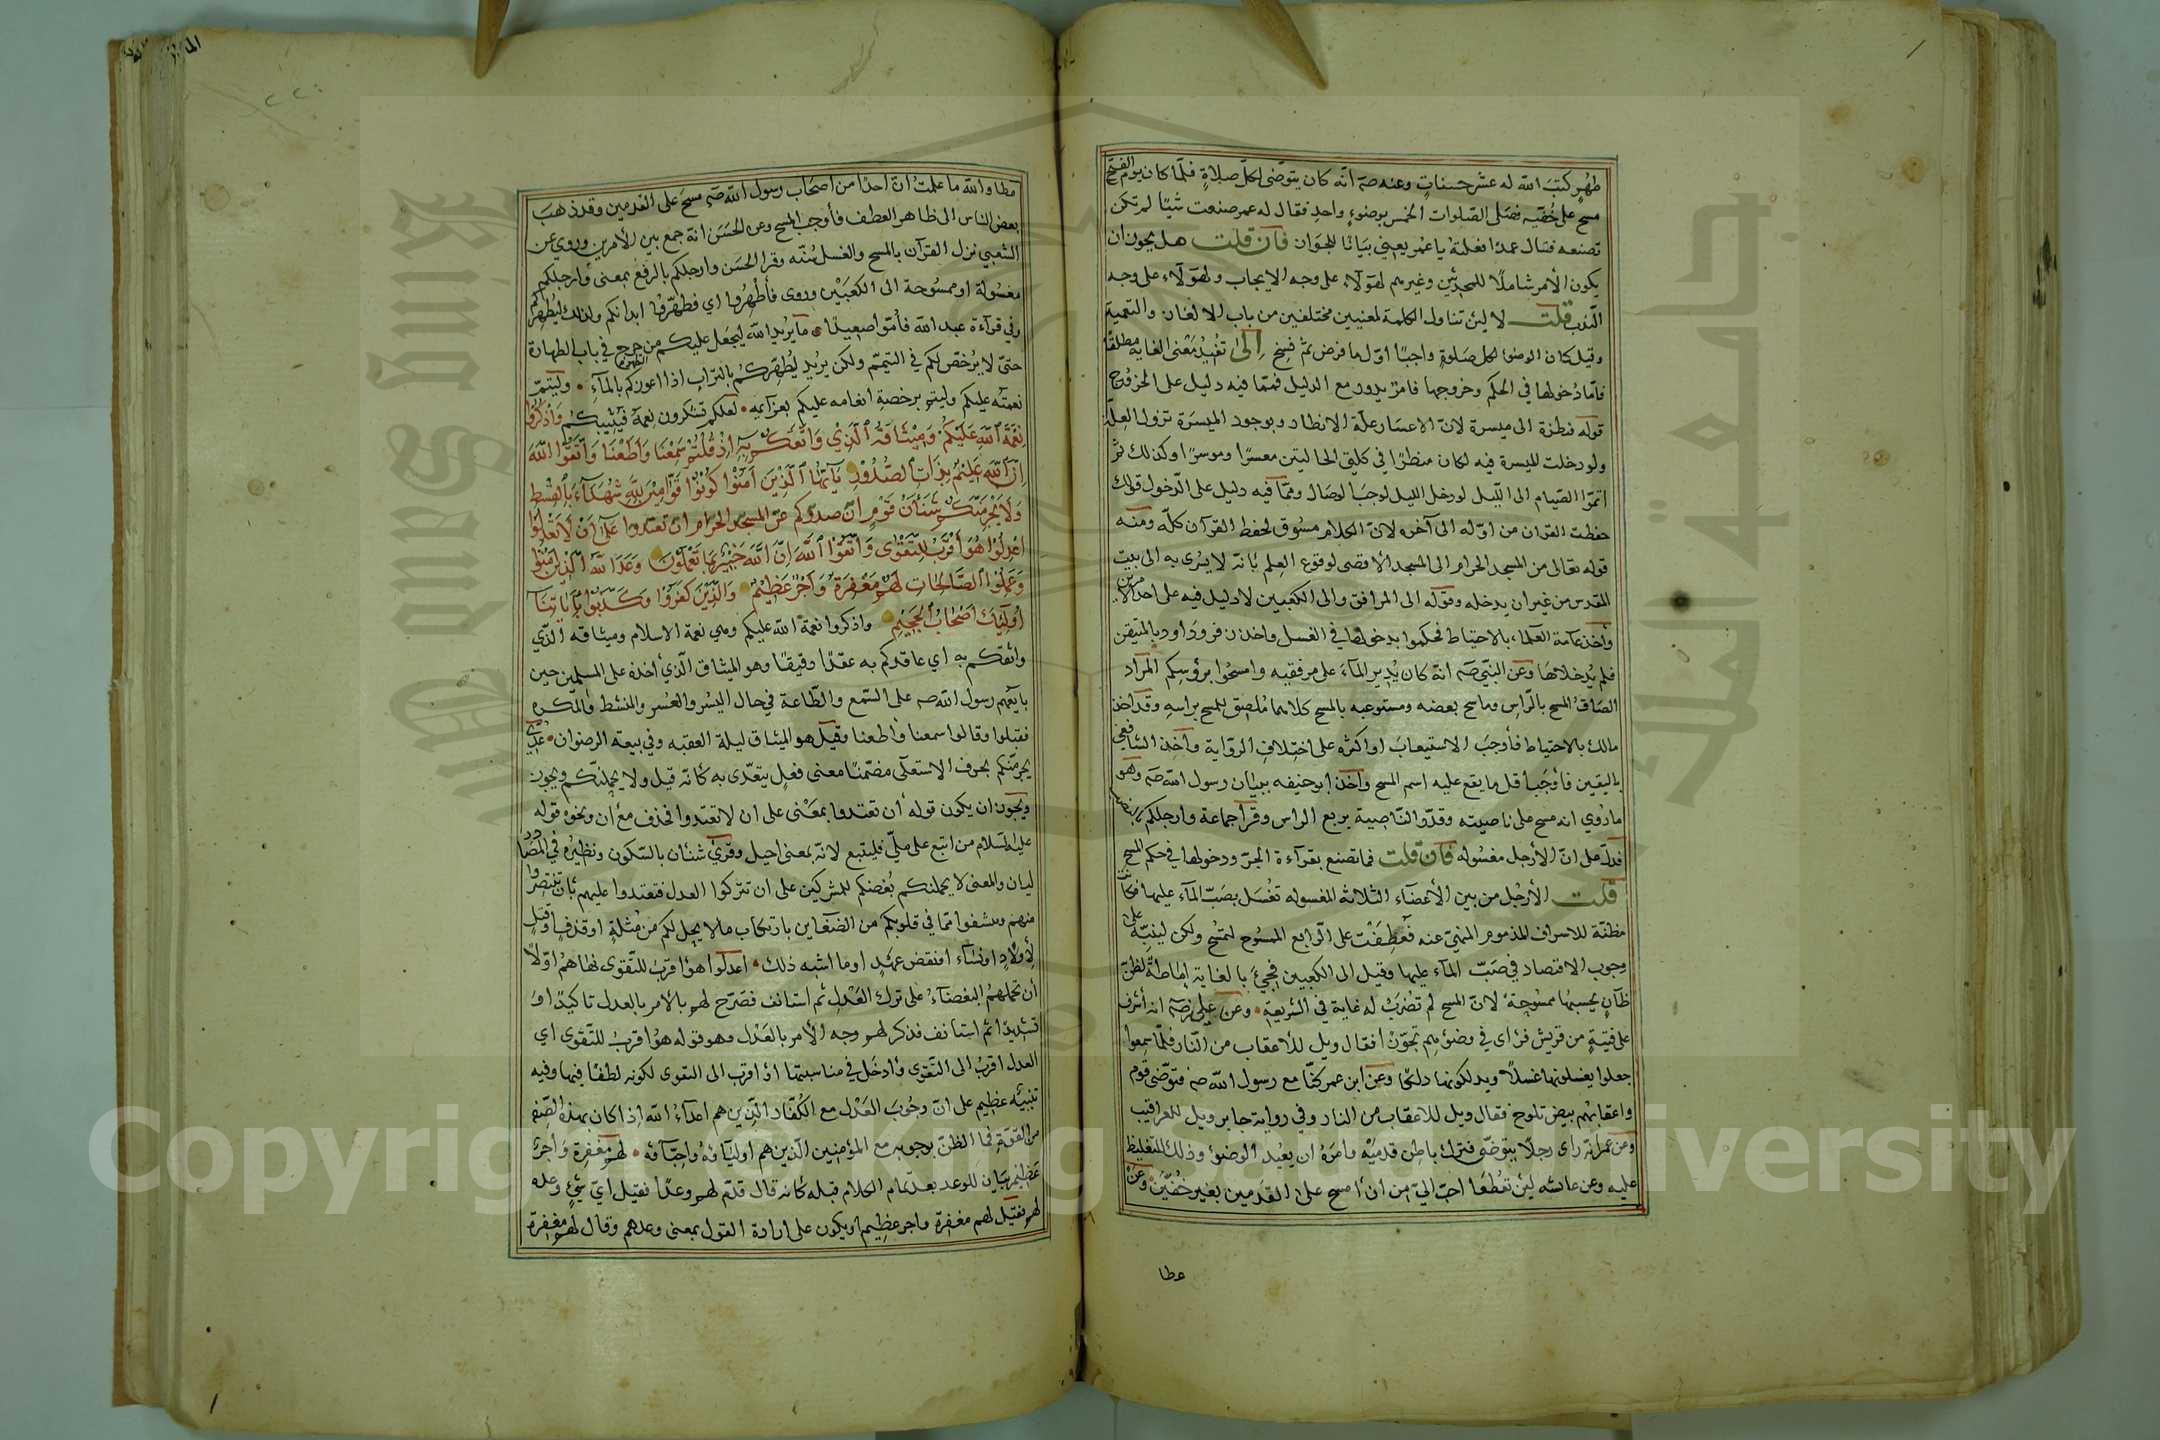 طهر كتب الله له عشر حسنات وعنه صه انه كان يتوضى لكل صلاة فلما كان يوم الفتح
مسح على خفيه فصلى الصلوات الخمس بوضوء واحد فقال له عمر صنعت شيئا لم تكن
تصنعه فقال عمدا فعلته يا عمر يعنى بيانا للجواز فان قلت هل يجوز ان
يكون الأمر شاملا للمحدثين وغيرهم لهؤلاء على وجه الايجاب ولهؤلاء على وجه
الندب قلت لا لان تناول الكلمة لمعنيين مختلفين من باب الالغاز والتعمية
وقيل كان الوضوء لكل صلوة واجبا اول ما فرض ثم نسخ الى تفيد معنى الغاية مطلقا
فاما دخولها في الحكم وخروجها فامر يدور مع الدليل فمما فيه دليل على الخروج
قوله فنظرة الى ميسرة لان الاعسار علة الانظار وبوجود الميسرة تزول العلة
ولو دخلت الميسرة فيه لكان منظرا في كلتى الحالتين معسرا وموسرا وكذلك ثم
اتموا الصيام الى الليل لو دخل الليل لوجب الوصال ومما فيه دليل على الدخول قولك
حفظت القران من اوله الى آخره لان الكلام مسوق لحفظ القرآن كله ومنه
قوله تعالى من المسجد الحرام الى المسجد الأقصى لوقوع العلم بانه لا يسرى به الى بيت
المقدس من غير ان يدخله وقوله الى المرافق والى الكعبين لا دليل فيه على احد الأمرين
وأخذ عامة العلماء بالاحتياط فحكموا بدخولها في الغسل واخذ زفر وداود بالمتيقن
فلم يدخلاها وعن النبي صه انه كان يدير الماء على مرفقيه وامسحوا برؤسكم المراد
الصاق المسح بالراس وماسح بعضه ومستوعبه بالمسح كلاهما ملصق للمسح براسه وقد اخذ
مالك بالاحتياط فأوجب الاستيعاب او اكثره على اختلاف الرواية وأخذ الشافعي
باليقين فأوجب أقل ما يقع عليه اسم المسح وأخذ ابو حنيفه ببيان رسول الله صه وهو
ما روي انه مسح على ناصيته وقدر الناصية بربع الراس وقرأ جماعة وارجلكم بالنصب
فدل على ان الأرجل مغسوله فان قلت فما تصنع بقرآءة الجر ودخولها في حكم المسح
قلت الأرجل من بين الأعضاء الثلاثة المغسوله تغسل بصب الماء عليها فكانت
مظنة للاسراف المذموم المنهي عنه فعطفت على الرابع الممسوح لا لتمسح ولكن لينبه على
وجوب الاقتصاد في صب الماء عليها وقيل الى الكعبين فجيء بالغاية اماطة لظن
ظان يحسبها ممسوحة لان المسح لم تضرب له غاية في الشريعة وعن علي رضه انه أشرف
على فتية من قريش فرأى في وضوئهم تجوزا فقال ويل للأعقاب من النار فلما سمعوا
جعلوا يغسلونها غسلا ويدلكونها دلكا وعن ابن عمر كنا مع رسول الله صه فتوضى قوم
واعقابهم بيض تلوح فقال ويل للاعقاب من النار وفي رواية جابر ويل للعراقيب
وعن عمر انه رأى رجلا يتوضى فترك باطن قدميه فامره ان يعيد الوضوء وذلك للتغليظ
عليه وعن عائشه لئن تقطعا احب الي من ان أمسح على القدمين بغير خفين وعن
عطا
عطا والله ما علمت ان احدا من اصحاب رسول الله صه مسح على القدمين وقد ذهب
بعض الناس الى ظاهر العطف فأوجب المسح وعن الحسن انه جمع بين الأمرين وروي عن
الشعبي نزل القرآن بالمسح والغسل سنة وقرا الحسن وارجلكم بالرفع بمعنى وأرجلكم
مغسولة او ممسوحة الى الكعبين وروى فأطهروا اي فطهروا ابدانكم وكذلك ليطهركم
وفي قرآءة عبد الله فأموا صعيدا ما يريد الله ليجعل عليكم من حرج في باب الطهارة
حتى لا يرخص لكم في التيمم ولكن يريد ليطهركم بالتراب اذا اعوزكم التطهر بالماء وليتم
نعمته عليكم وليتم برخصه انعامه عليكم بعزائمه لعلكم تشكرون نعمة فيثيبكم واذكروا
نعمة الله عليكم وميثاقه الذي واثقكم به اذ قلتم سمعنا واطعنا واتقوا الله
ان الله عليم بذات الصدور يآ ايها الذين آمنوا كونوا قوامين لله شهدآء بالقسط
ولا يجرمنكم شنآن قوم ان صدوكم عن المسجد الحرام ان تعتدوا على ان لا تعدلوا
اعدلوا هو أقرب للتقوى واتقوا الله ان الله خبير بما تعملون وعد الله الذين آمنوا
وعملوا الصالحات لهم مغفرة وأجر عظيم والذين كفروا وكذبوا بآياتنا
اولئك اصحاب الجحيم واذكروا نعمة الله عليكم وهي نعمة الاسلام وميثاقه الذي
واثقكم به اي عاقدكم به عقدا وثيقا وهو الميثاق الذي أخذه على المسلمين حين
بايعهم رسول الله صه على السمع والطاعة في حال اليسر والعسر والمنشط والمكره
فقبلوا وقالوا سمعنا وأطعنا وقيل هو الميثاق ليلة العقبه وفي بيعة الرضوان عدي
يجرمنكم بحرف الاستعلى مضمنا معنى فعل يتعدى به كأنه قيل ولا يحملنكم ويجوز
ويجوز ان يكون قوله أن تعتدوا بمعنى على ان لا تعتدوا فحذف مع أن ونحوه قوله
عليه السلام من اتبع على ملي فليتبع لانه بمعنى احيل وقرئ شنئان بالسكون ونظيره في المصادر
ليان والمعنى لا يحملنكم بغضكم للمشركين على ان تتركوا العدل فتعتدوا عليهم بأن تنتصروا
منهم وتشفوا مما في قلوبكم من الضغاين بارتكاب ما لا يحل لكم من مثلة او قذف او قتل
لأولاد او نسآء او نقض عهد او ما اشبه ذلك اعدلوا هو اقرب للتقوى نهاهم اولا
أن تحملهم البغضاء على ترك العدل ثم استانف فصرح لهم بالامر بالعدل تاكيدا او
تشديدا ثم استانف فذكر لهم وجه الأمر بالعدل وهو قوله هو اقرب للتقوى اي
العدل اقرب الى التقوى وأدخل في مناسبتها او اقرب الى التقوى لكونه لطفا فيها وفيه
تنبيه عظيم على ان وجوب العدل مع الكفار الذين هم اعدآء الله اذا كان بهذه الصفة
من القوة فما الظن بوجوبه مع المؤمنين الذين هم اولياؤه واحبآؤه لهم مغفرة وأجر
عظيم بيان للوعد بعد تمام الكلام قبله كأنه قال قدم لهم وعدا فقيل اي شيء وعده
لهم فقيل لهم مغفرة واجر عظيم او يكون على ارادة القول بمعنى وعدهم وقال لهم مغفرة
٢٢٠
Copyright King Saud University
King Saud University
جامعة الملك سعود